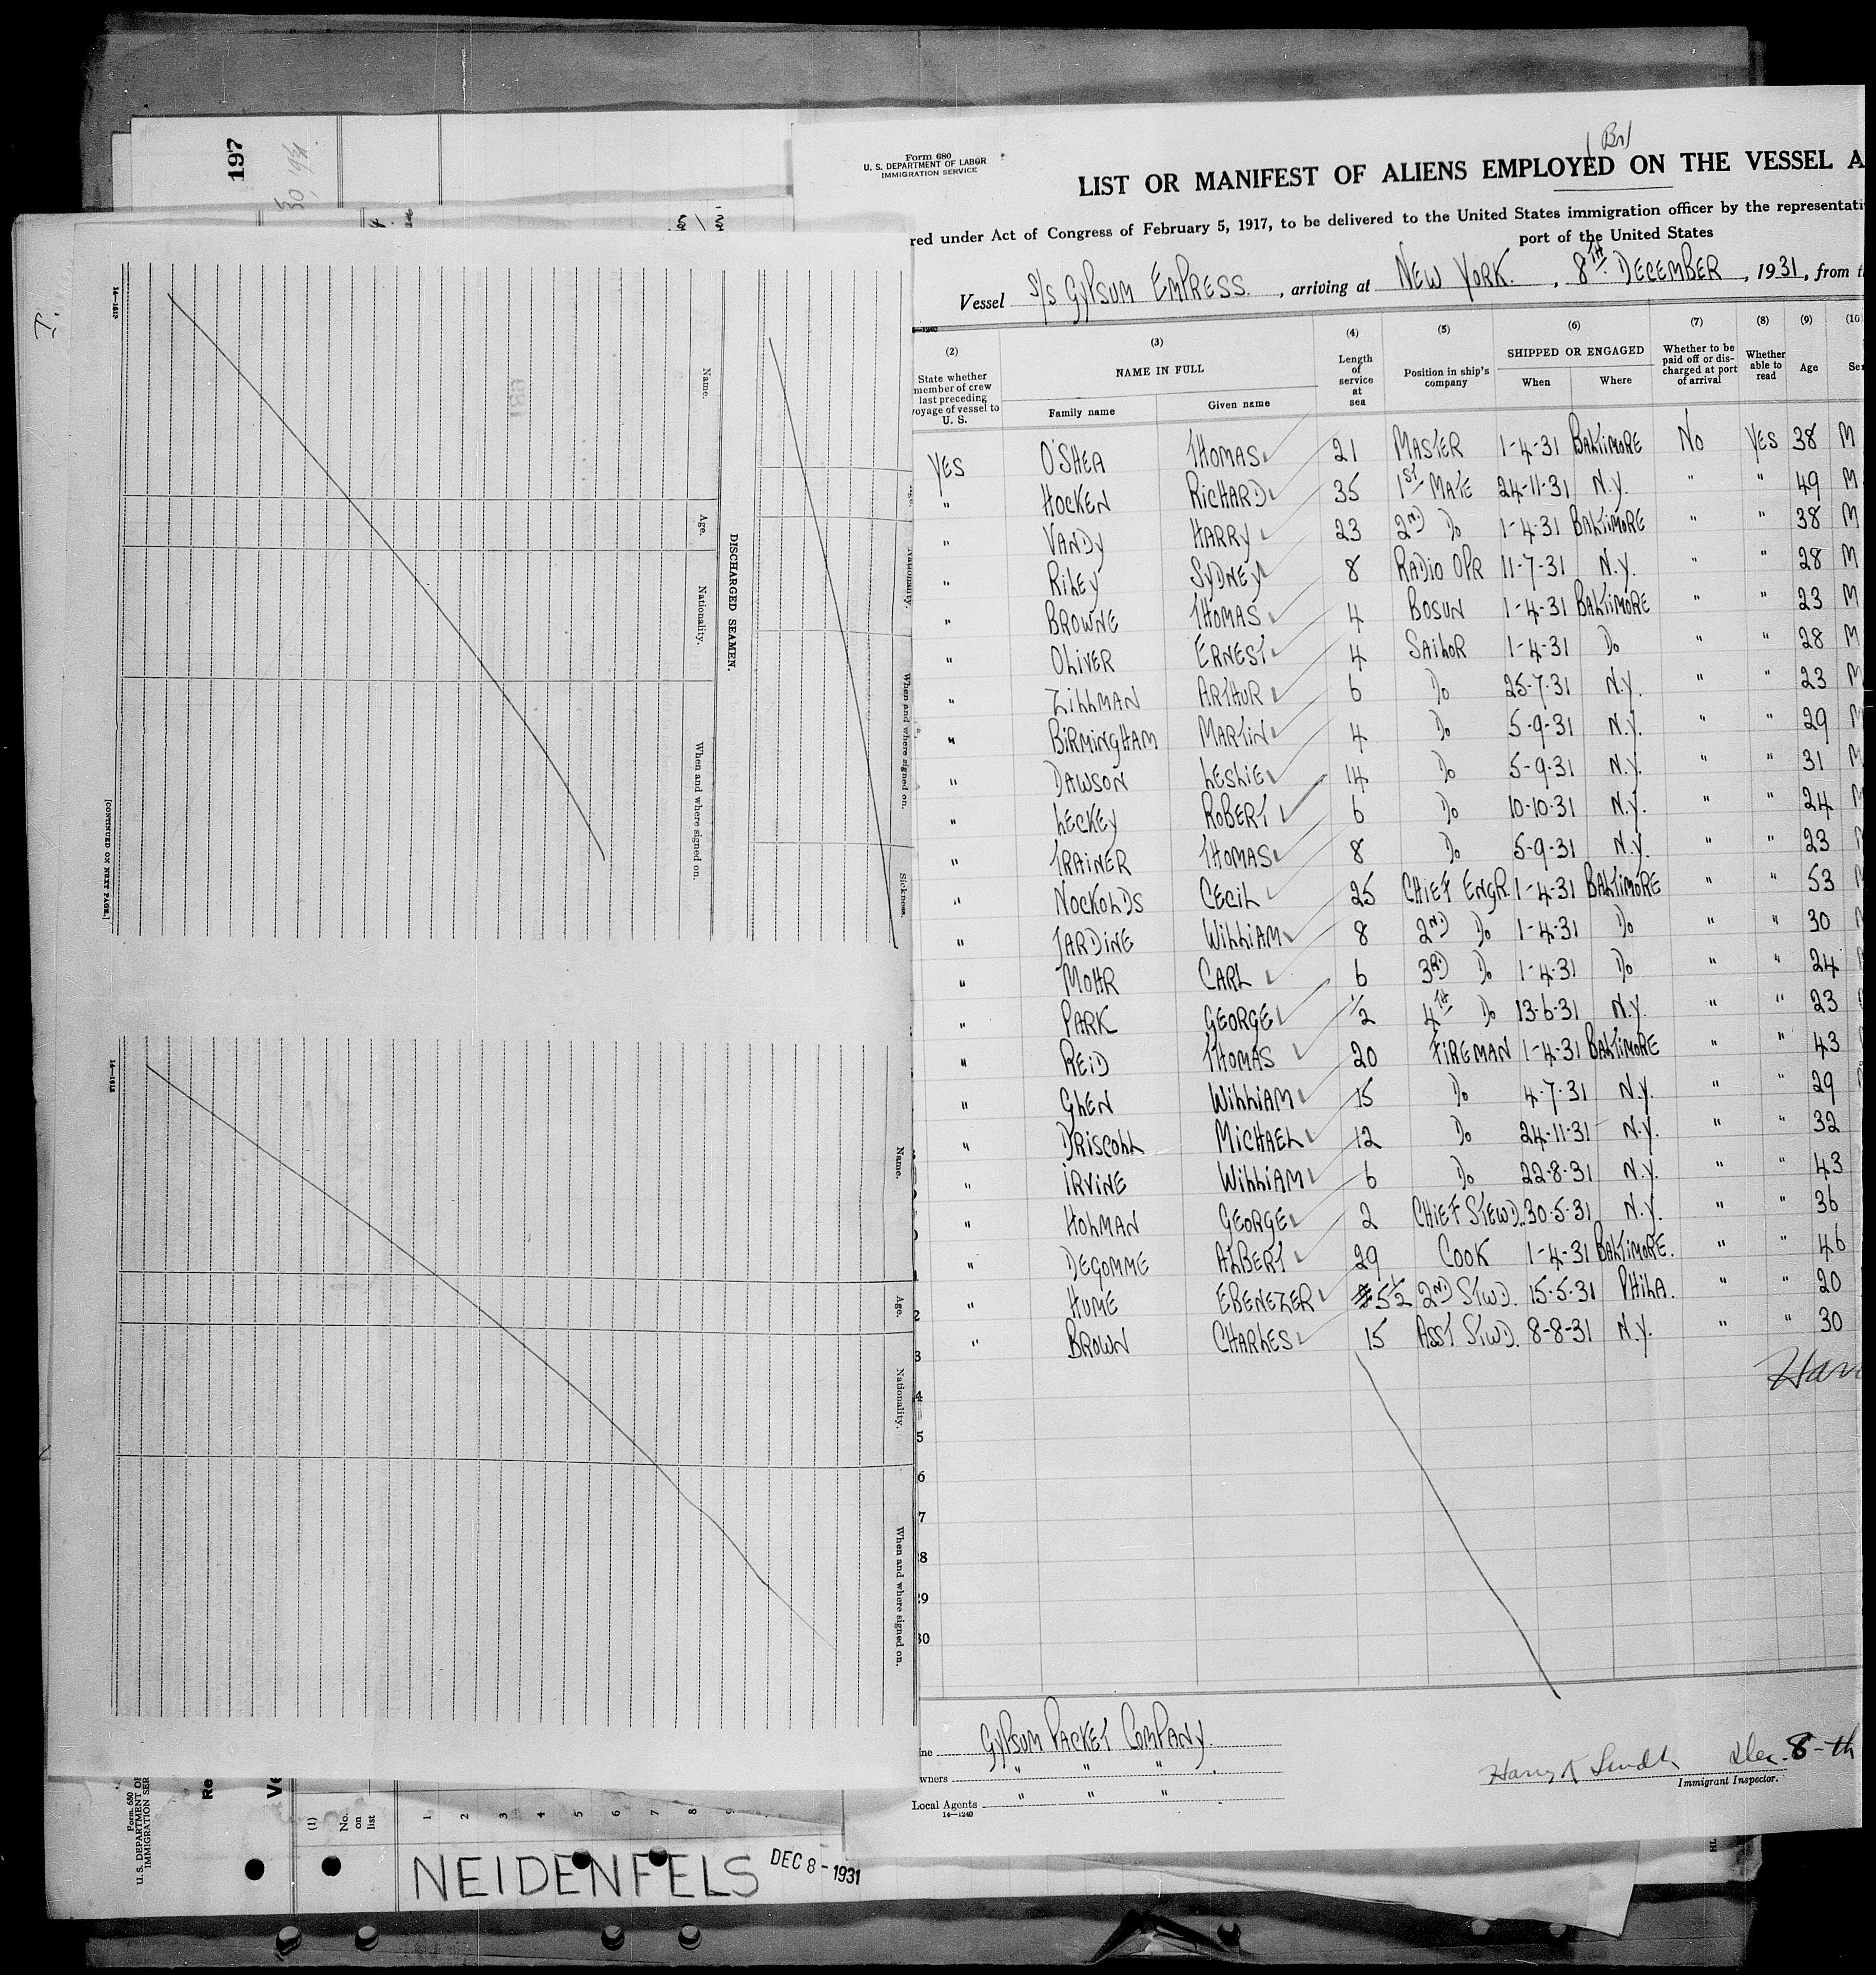 197
Form 680
U. S. DEPARTMENT OF LABOR
IMMIGRATION SERVICE
(Br)
LIST OR MANIFEST OF ALIENS EMPLOYED ON THE VESSEL A
red under Act of Congress of February 5, 1917, to be delivered to the United States immigration officer by the representati
port of the United States
Vessel S/S GYPSUM EMPRESS. , arriving at NEW YORK. , 8TH DECEMBER , 1931, from t
14—1240
(2) (3) (4) (5) (6) (7) (8) (9) (10
State whether member of crew last preceding voyage of vessel to U. S.
NAME IN FULL
Family name Given name
Length of service at sea
Position in ship's company
SHIPPED OR ENGAGED
When Where
Whether to be paid off or discharged at port of arrival
Whether able to read
Age
Se
YES O'SHEA THOMAS 21 MASTER 1-4-31 BALTIMORE NO YES 38 M
" HOCKEN RICHARD 35 1ST MATE 24-11-31 N.Y. " " 49 M
" VANDY HARRY 23 2ND DO 1-4-31 BALTIMORE " " 38 M
" RILEY SYDNEY 8 RADIO OPR 11-7-31 N.Y. " " 28 M
" BROWNE THOMAS 4 BOSUN 1-4-31 BALTIMORE " " 23 M
" OLIVER ERNEST 4 SAILOR 1-4-31 DO " " 28 M
" ZILLMAN ARTHUR 6 DO 25-7-31 N.Y. " " 23 M
" BIRMINGHAM MARTIN 4 DO 5-9-31 N.Y. " " 29 M
" DAWSON LESLIE 14 DO 5-9-31 N.Y. " " 31 M
" LECKEY ROBERT 6 DO 10-10-31 N.Y. " " 24 M
" TRAINER THOMAS 8 DO 5-9-31 N.Y. " " 23
" NOCKOLDS CECIL 25 CHIEF ENGR. 1-4-31 BALTIMORE " " 53
" JARDINE WILLIAM 8 2ND DO 1-4-31 DO " " 30
" MOHR CARL 6 3RD DO 1-4-31 DO " " 24
" PARK GEORGE 1/2 4TH DO 13-6-31 N.Y. " " 23
" REID THOMAS 20 FIREMAN 1-4-31 BALTIMORE " " 43
" GLEN WILLIAM 15 DO 4-7-31 N.Y. " " 29
" DRISCOLL MICHAEL 12 DO 24-11-31 N.Y. " " 32
" IRVINE WILLIAM 6 DO 22-8-31 N.Y. " " 43
" HOLMAN GEORGE 2 CHIEF STEWD. 30-5-31 N.Y. " " 36
" DEGOMME ALBERT 29 COOK 1-4-31 BALTIMORE. " " 46
" HUME EBENEZER 5 1/2 2ND STWD. 15-5-31 PHILA. " " 20
" BROWN CHARLES 15 ASST STWD. 8-8-31 N.Y. " " 30
Har
GYPSUM PACKET COMPANY.
wners " " "
Local Agents " " "
14—1240
Dec. 8-th
Immigrant Inspector.
Name.
Age.
Nationality.
When and where signed on.
DISCHARGED SEAMEN.
Nationality.
When and where signed on.
Sickness.
[CONTINUED ON NEXT PAGE.]
Name.
Age.
Nationality.
When and where signed on.
Form 680
U. S. DEPARTMENT OF
IMMIGRATION SER
Re
Ve
(1)
No. on list
1 2 3 4 5 6 7 8
NEIDENFELS
DEC 8 - 1931